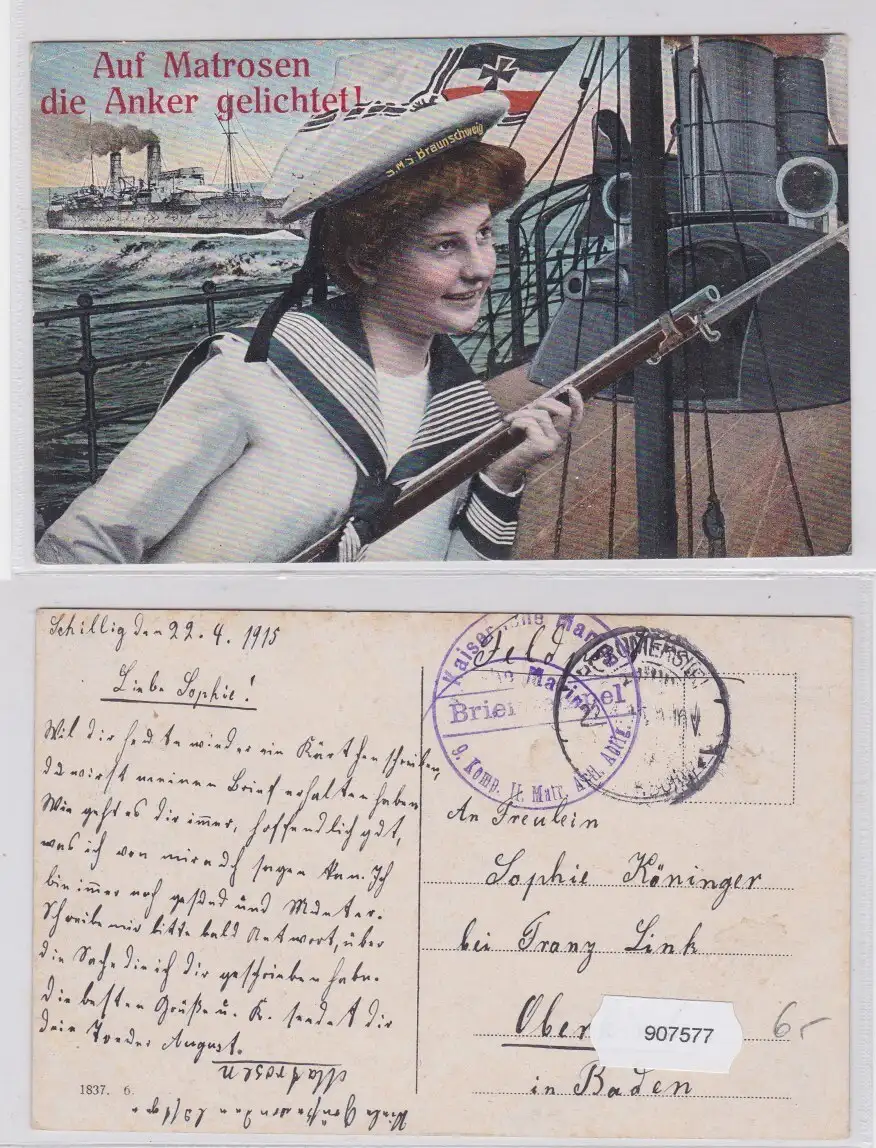 Auf Matrosen
die Anker gelichtet!
S.M.S Braunschweig
Schillig den 22.4.1915
Liebe Sophie!
Wil dir heute wieder ein Kärtchen schreiben,
du wirst meinen Brief erhalten haben
Wie geht es dir immer, hoffendlich gut,
was ich von mir auch sagen kan. Ich
bin immer noch gesund und Munter.
Schreibe mir bitte bald Antwort, über
die Sache die ich dir geschrieben habe.
Die besten Grüße u. K. sendet dir
dein August.
Matrosen
Viele Grüße von
1837. 6.
Feld
Kaiserliche Marine
Marine
Brief
9. Komp. II. Matr. Art. Abtlg.
An Freulein
Sophie Köninger
bei Franz Link
Ober
in Baden
907577
6.-